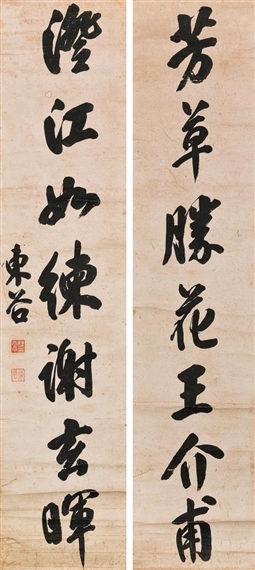 芳草勝花王介甫
澄江如練謝玄暉
東谷